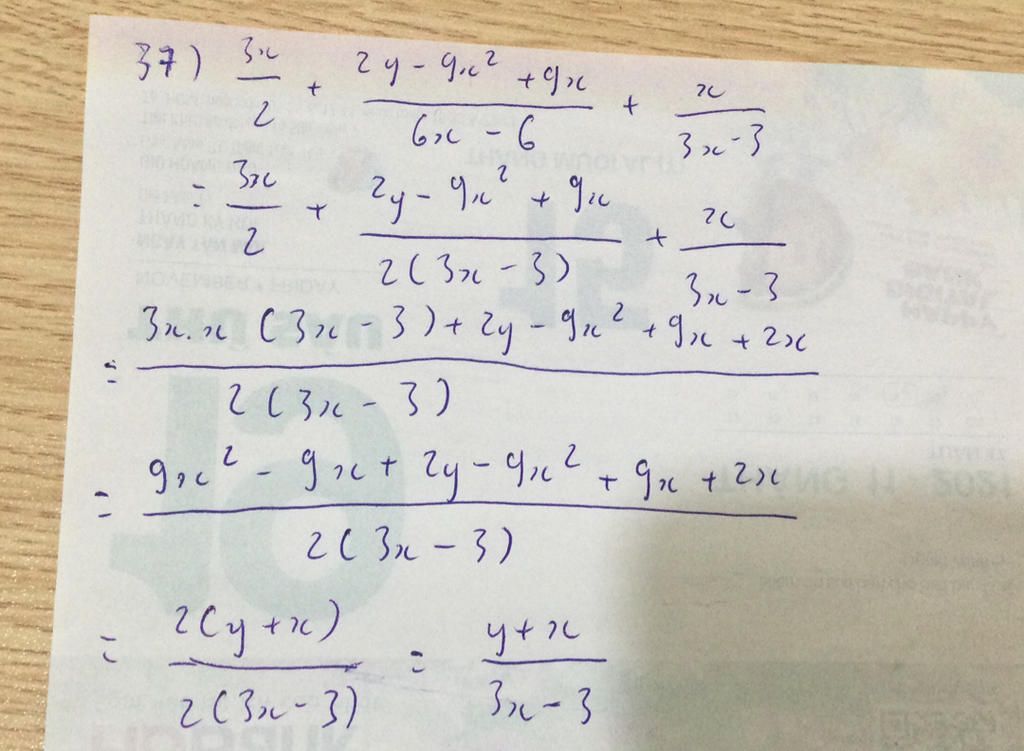 37) 3x/2 + (2y - 9x² + 9x)/(6x - 6) + x/(3x - 3)
= 3x/2 + (2y - 9x² + 9x)/(2(3x - 3)) + x/(3x - 3)
= (3x.x (3x - 3) + 2y - 9x² + 9x + 2x)/(2(3x - 3))
= (9x² - 9x + 2y - 9x² + 9x + 2x)/(2(3x - 3))
= (2(y + x))/(2(3x - 3)) = (y + x)/(3x - 3)